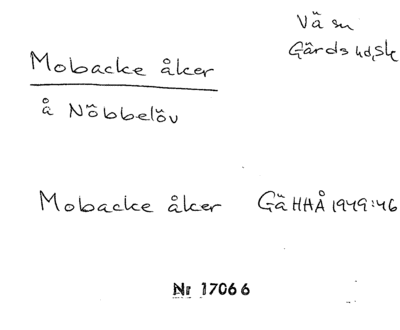 Vä sn
Gärds hd, Sk
Mobacke åker
å Nöbbelöv
Mobacke åker GäHHÅ 1949:46
Nr 17066